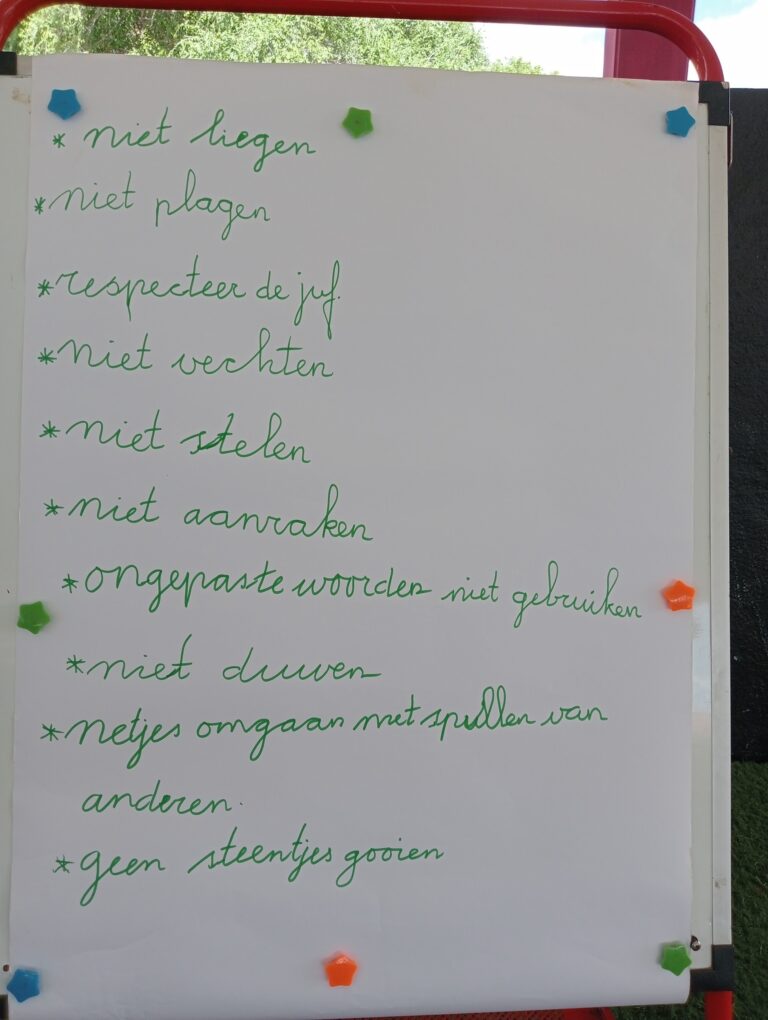 * niet liegen
* niet plagen
* respecteer de juf.
* niet vechten
* niet stelen
* niet aanraken
* ongepaste woorden niet gebruiken
* niet duwen
* netjes omgaan met spullen van
anderen.
* geen steentjes gooien